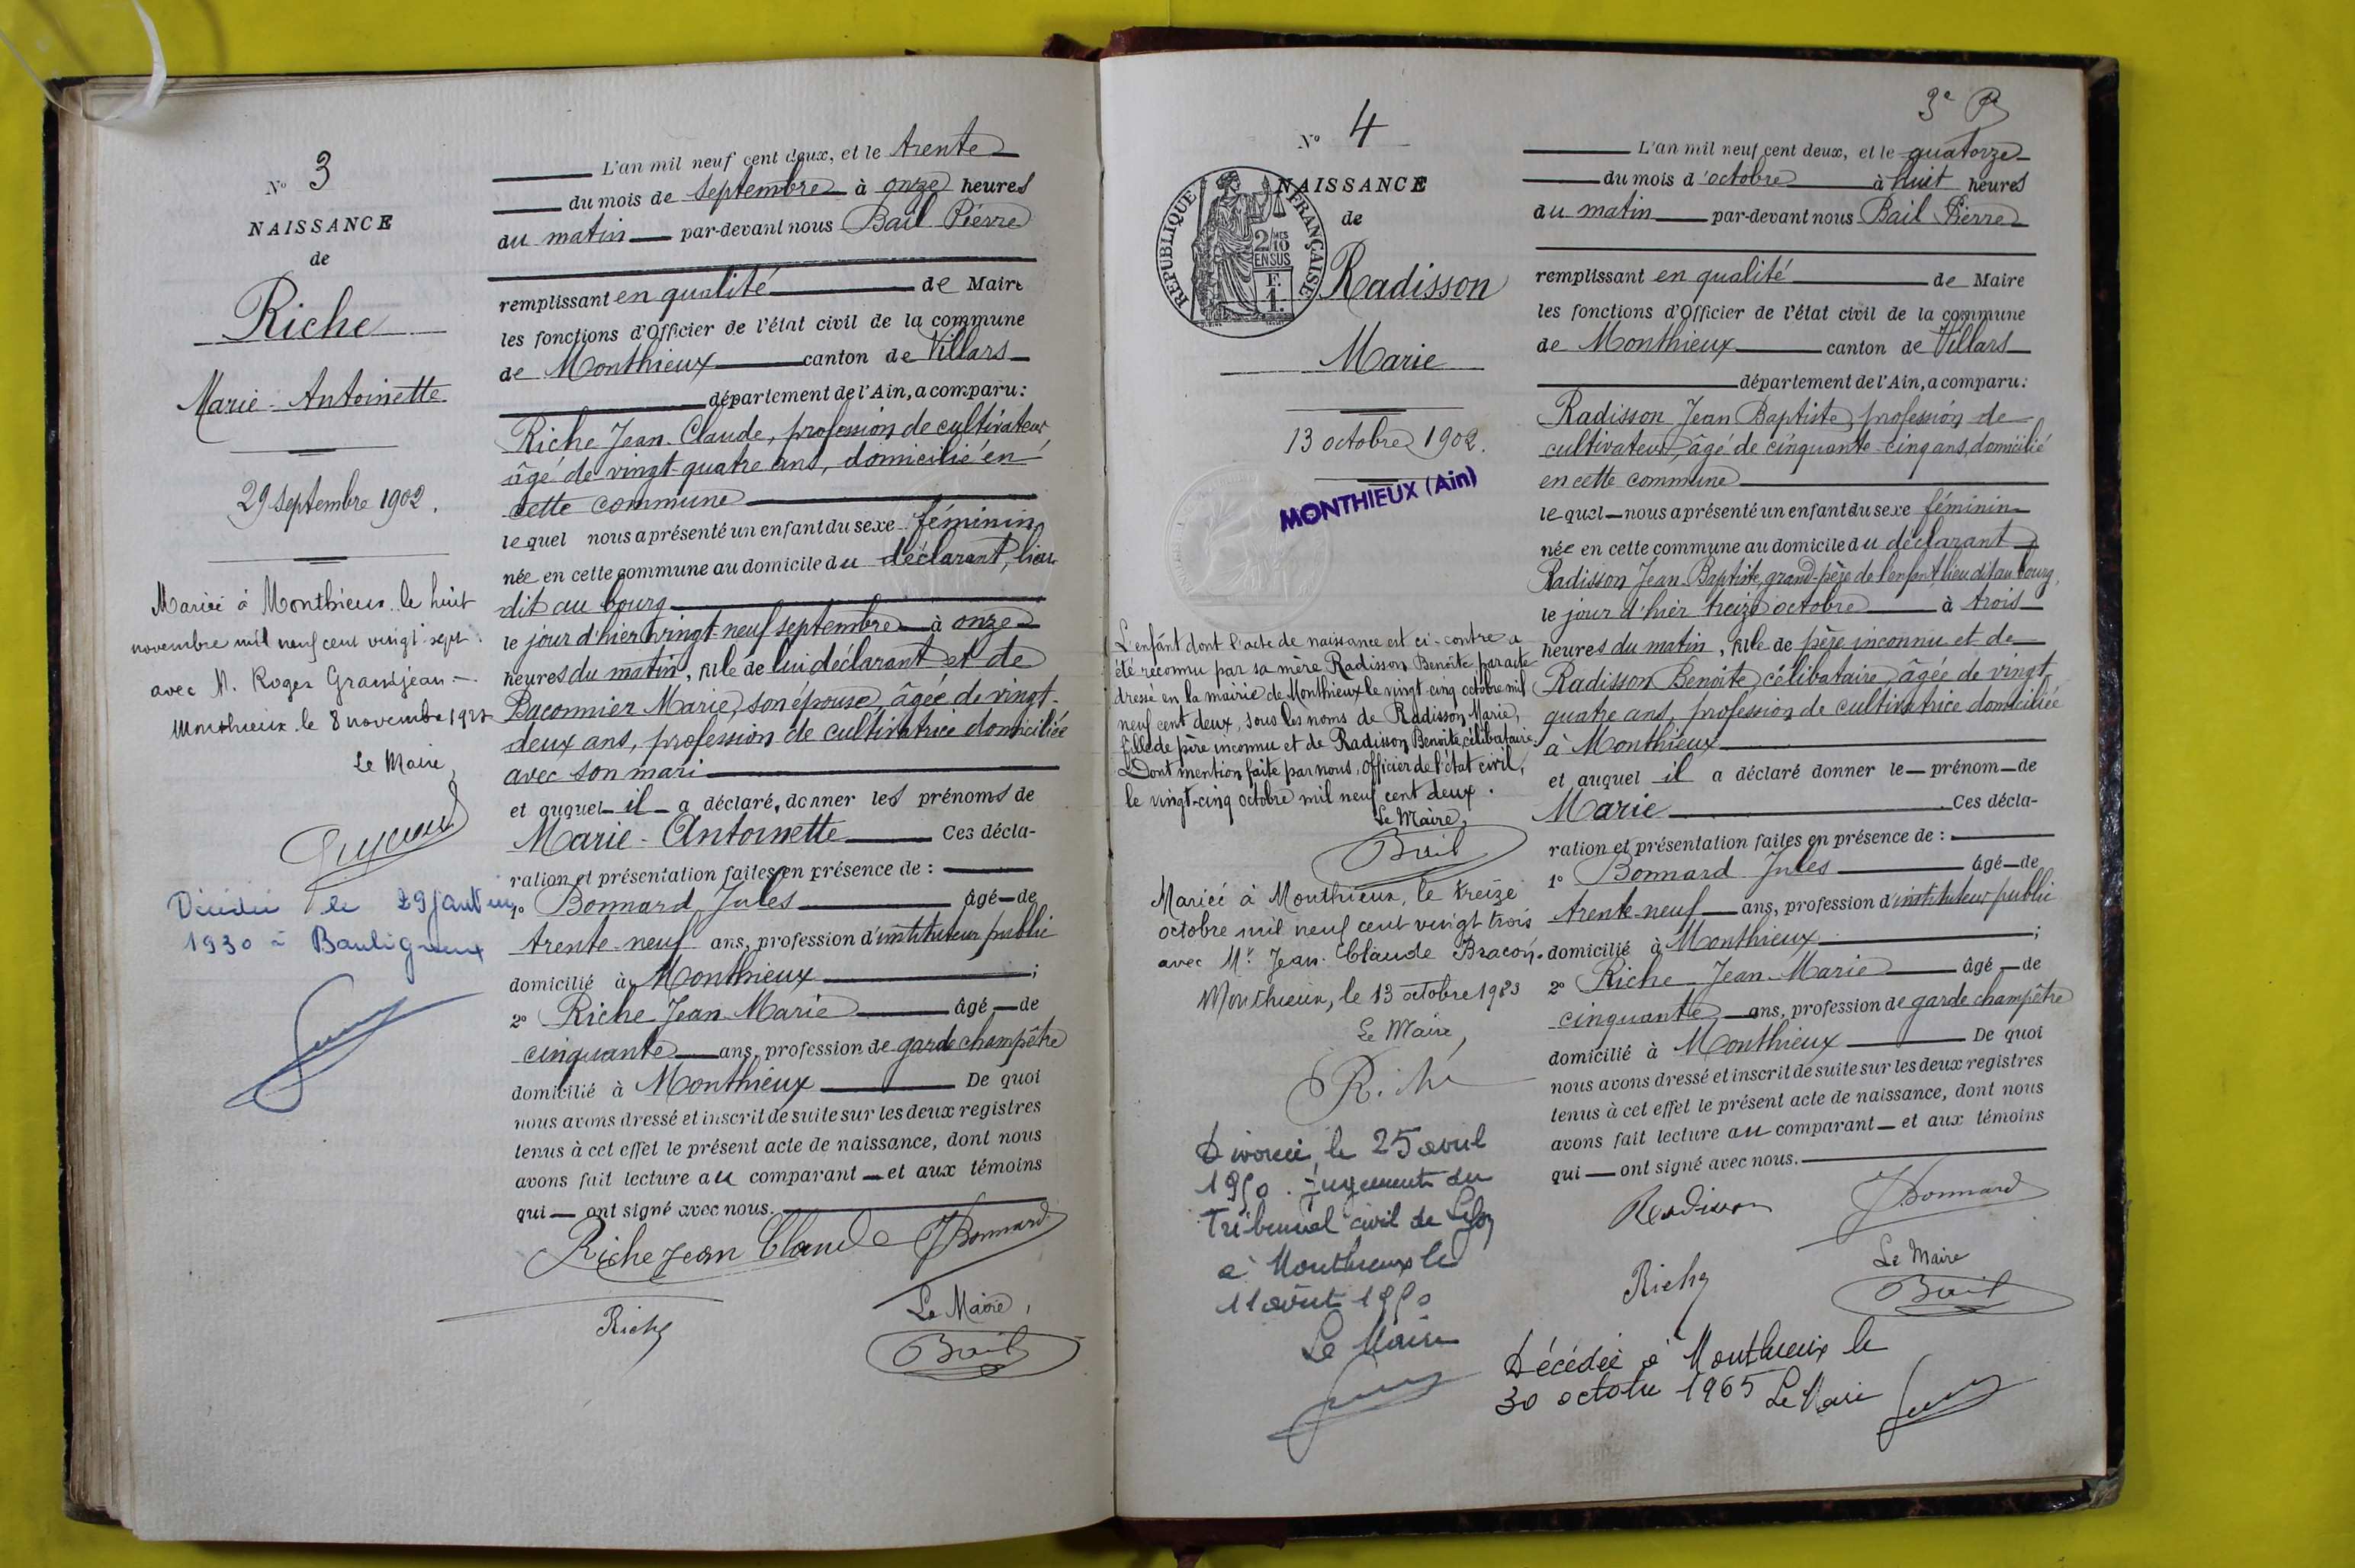 N° 3
NAISSANCE
de
Riche
Marie-Antoinette
29 septembre 1902.
Mariée à Monthieux le huit
novembre mil neuf cent vingt-sept
avec M. Roger Grandjean
Monthieux le 8 novembre 1927
Le Maire
Décédée le 29 janvier
1930 à Bouligneux
L'an mil neuf cent deux, et le trente
du mois de septembre à onze heures
du matin par-devant nous Bail Pierre
remplissant en qualité de Maire
les fonctions d'Officier de l'état civil de la commune
de Monthieux canton de Villars
département de l'Ain, a comparu:
Riche Jean-Claude, profession de cultivateur,
âgé de vingt-quatre ans, domicilié en
cette commune
lequel nous a présenté un enfant du sexe féminin
née en cette commune au domicile du déclarant, lieu
dit au bourg
le jour d'hier vingt-neuf septembre à onze
heures du matin, fille de lui déclarant et de
Baconnier Marie, son épouse, âgée de vingt-
deux ans, profession de cultivatrice domiciliée
avec son mari
et auquel il a déclaré donner les prénoms de
Marie-Antoinette Ces décla-
ration et présentation faites en présence de :
1° Bonnard Jules âgé de
trente-neuf ans, profession d'instituteur public
domicilié à Monthieux ;
2° Riche Jean-Marie âgé de
cinquante ans, profession de garde champêtre
domicilié à Monthieux De quoi
nous avons dressé et inscrit de suite sur les deux registres
tenus à cet effet le présent acte de naissance, dont nous
avons fait lecture au comparant et aux témoins
qui ont signé avec nous.
Riche Jean Claude JBonnard
Riche
Le Maire,
Bail
3e
N° 4
NAISSANCE
de
REPUBLIQUE FRANÇAISE
2/10 MES
EN SUS
F.
1.
Radisson
Marie
13 octobre 1902.
MONTHIEUX (Ain)
L'enfant dont l'acte de naissance est ci-contre a
été reconnu par sa mère Radisson Benoîte par acte
dressé en la mairie de Monthieux le vingt-cinq octobre mil
neuf cent deux, sous les noms de Radisson Marie,
fille de père inconnu et de Radisson Benoîte, célibataire.
Dont mention faite par nous, Officier de l'état civil,
le vingt-cinq octobre mil neuf cent deux.
Le Maire,
Bail
Mariée à Monthieux, le treize
octobre mil neuf cent vingt trois
avec Mr. Jean-Claude Bracon.
Monthieux, le 13 octobre 1923
Le Maire,
Riche
Divorcée le 25 avril
1950. Jugement du
Tribunal civil de Lyon
à Monthieux le
11 août 1950
Le Maire
L'an mil neuf cent deux, et le quatorze
du mois d'octobre à huit heures
du matin par-devant nous Bail Pierre
remplissant en qualité de Maire
les fonctions d'Officier de l'état civil de la commune
de Monthieux canton de Villars
département de l'Ain, a comparu:
Radisson Jean Baptiste, profession de
cultivateur, âgé de cinquante-cinq ans, domicilié
en cette commune
lequel nous a présenté un enfant du sexe féminin
née en cette commune au domicile du déclarant
Radisson Jean-Baptiste, grand-père de l'enfant lieu dit au bourg,
le jour d'hier treize octobre à trois
heures du matin, fille de père inconnu et de
Radisson Benoîte, célibataire, âgée de vingt
quatre ans, profession de cultivatrice domiciliée
à Monthieux
et auquel il a déclaré donner le prénom de
Marie Ces décla-
ration et présentation faites en présence de :
1° Bonnard Jules âgé de
trente-neuf ans, profession d'instituteur public
domicilié à Monthieux ;
2° Riche Jean-Marie âgé de
cinquante ans, profession de garde champêtre
domicilié à Monthieux De quoi
nous avons dressé et inscrit de suite sur les deux registres
tenus à cet effet le présent acte de naissance, dont nous
avons fait lecture au comparant et aux témoins
qui ont signé avec nous.
Radisson JBonnard
Riche
Le Maire
Bail
Décédée à Monthieux le
30 octobre 1965 Le Maire